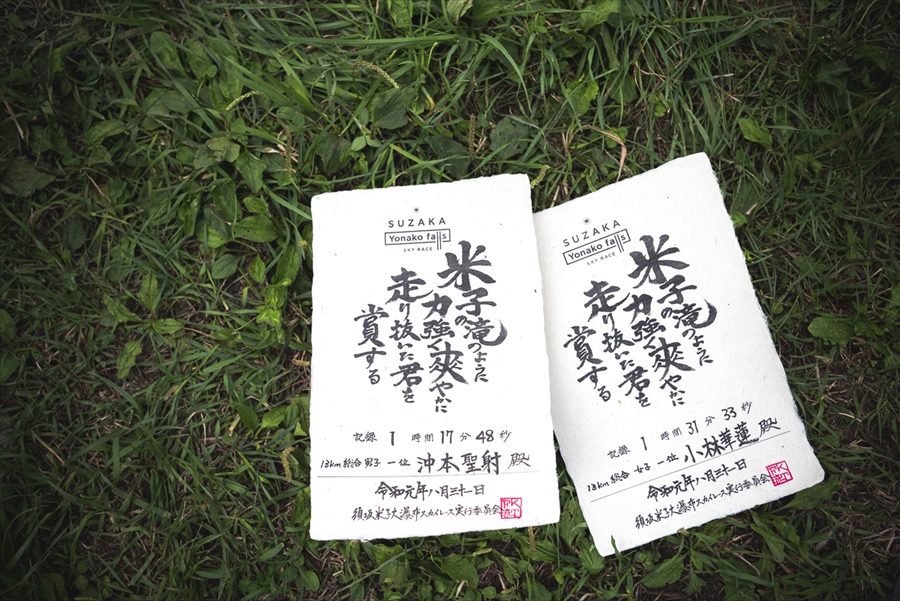 SUZAKA
Yonako falls
SKY RACE
米子の滝のように
力強く爽やかに
走り抜いた君を
賞する
記録 1 時間 17 分 48 秒
13km 総合 男子 一位 沖本聖射 殿
令和元年八月三十一日
須坂米子大瀑布スカイレース実行委員会
SUZAKA
Yonako falls
SKY RACE
米子の滝のように
力強く爽やかに
走り抜いた君を
賞する
記録 1 時間 31 分 33 秒
13km 総合 女子 一位 小林華蓮 殿
令和元年八月三十一日
須坂米子大瀑布スカイレース実行委員会